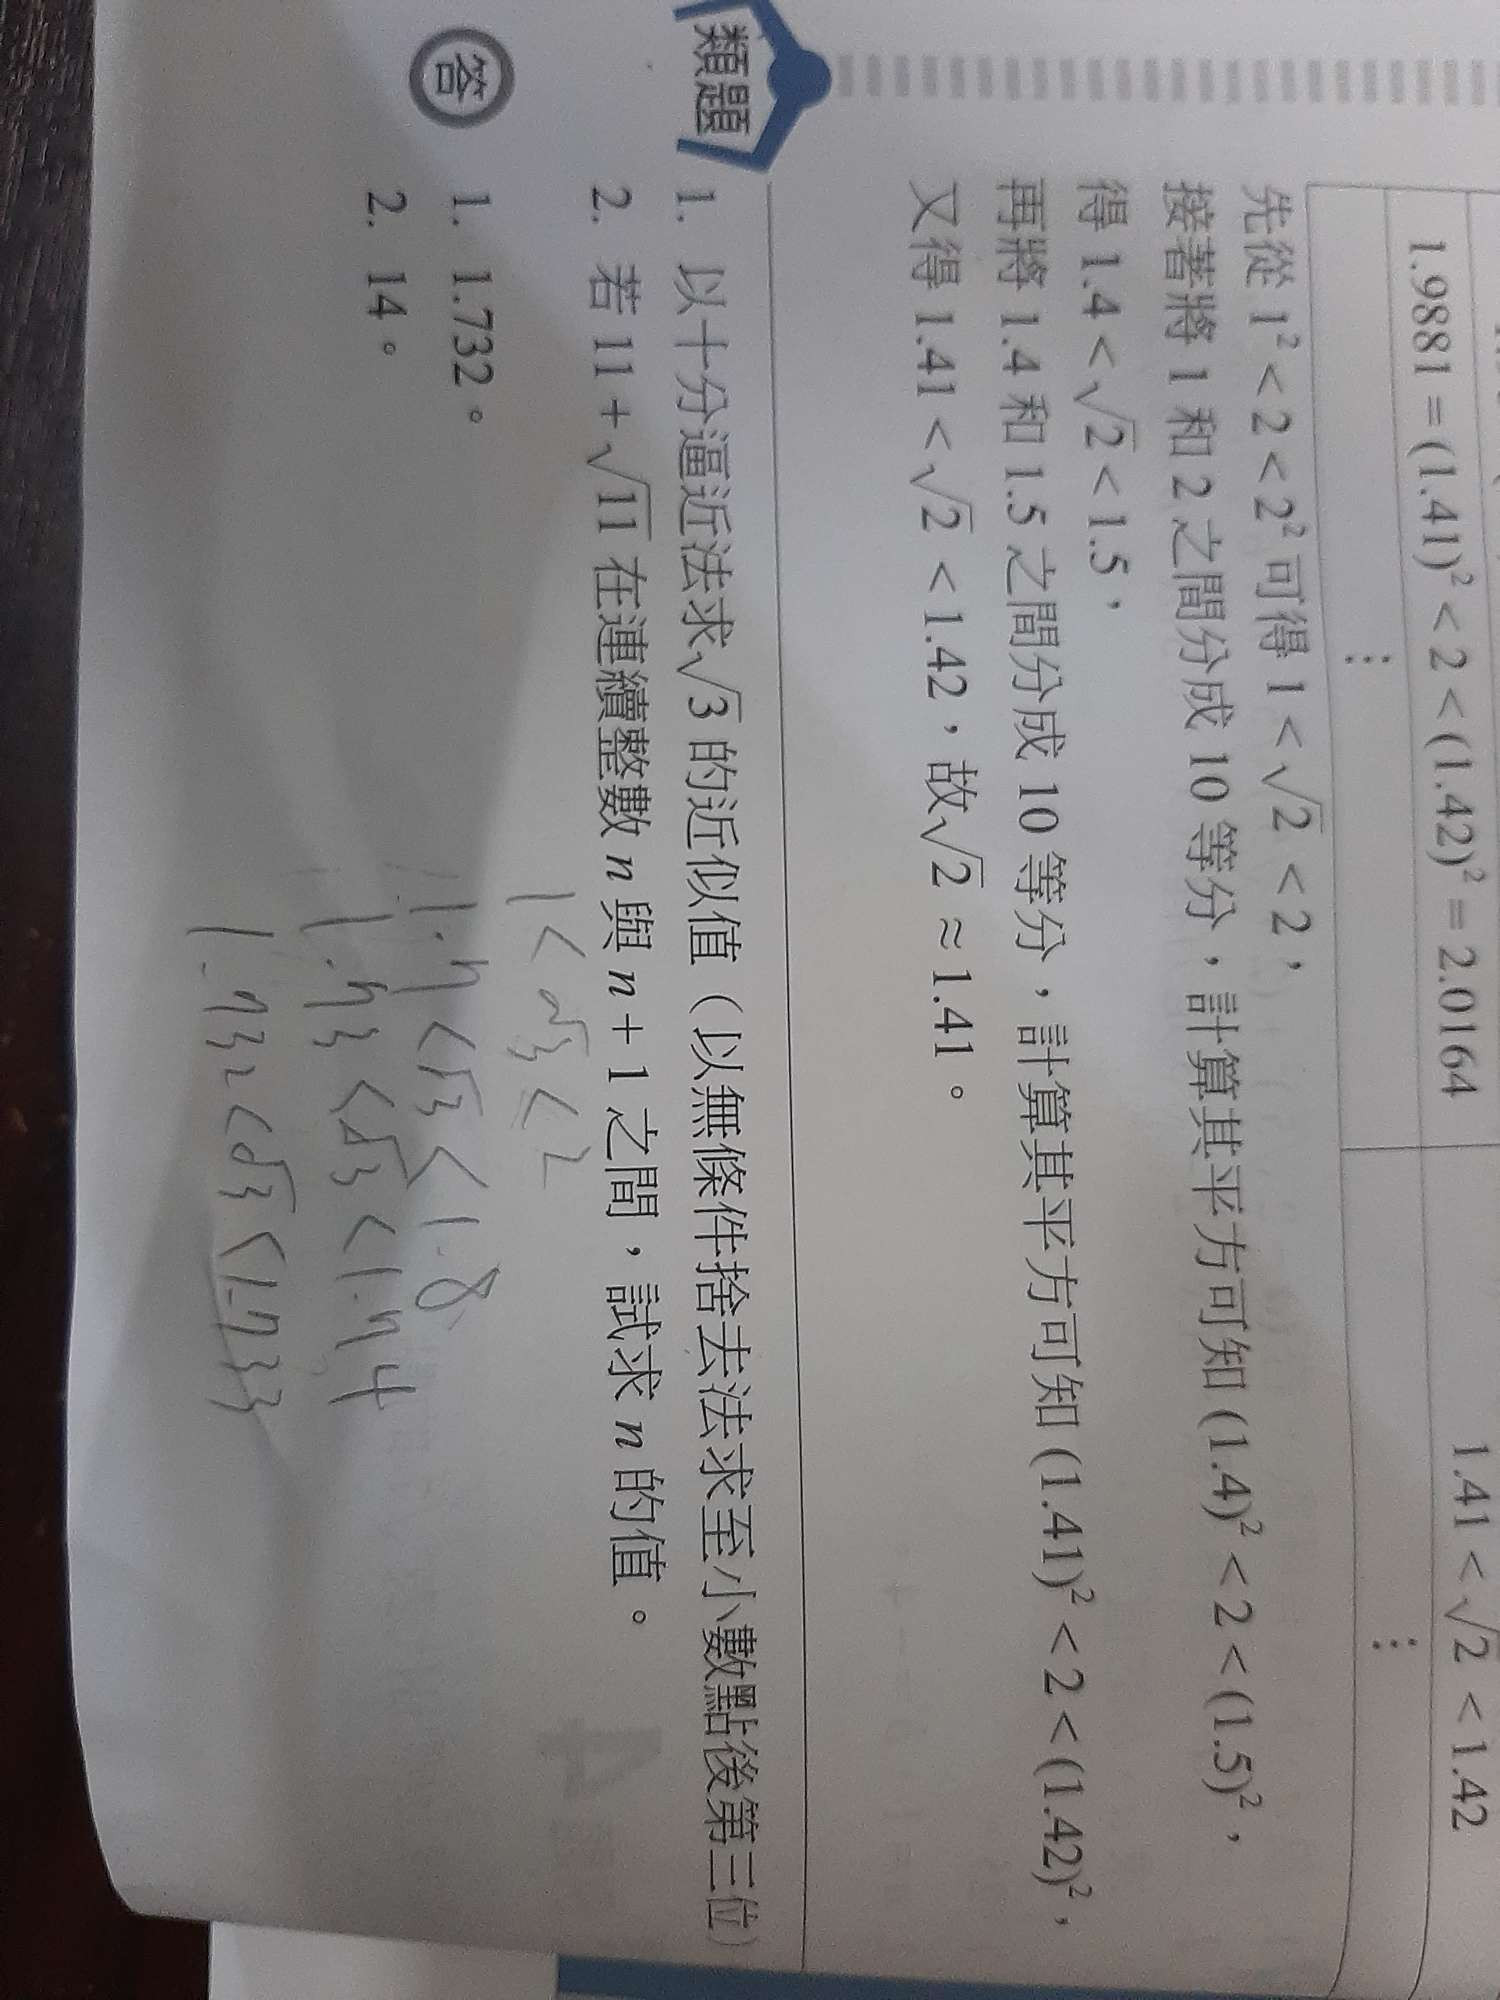 1.9881 = (1.41)² < 2 < (1.42)² = 2.0164
1.41 < √2 < 1.42
⋮
⋮
先從 1² < 2 < 2² 可得 1 < √2 < 2，
接著將 1 和 2 之間分成 10 等分，計算其平方可知 (1.4)² < 2 < (1.5)²，
得 1.4 < √2 < 1.5，
再將 1.4 和 1.5 之間分成 10 等分，計算其平方可知 (1.41)² < 2 < (1.42)²，
又得 1.41 < √2 < 1.42，故√2 ≈ 1.41。
類題
1. 以十分逼近法求√3 的近似值（以無條件捨去法求至小數點後第三位）
2. 若 11 + √11 在連續整數 n 與 n + 1 之間，試求 n 的值。
答
1. 1.732。
2. 14。
1 < √3 < 2
1.7 < √3 < 1.8
1.73 < √3 < 1.74
1.732 < √3 < 1.733